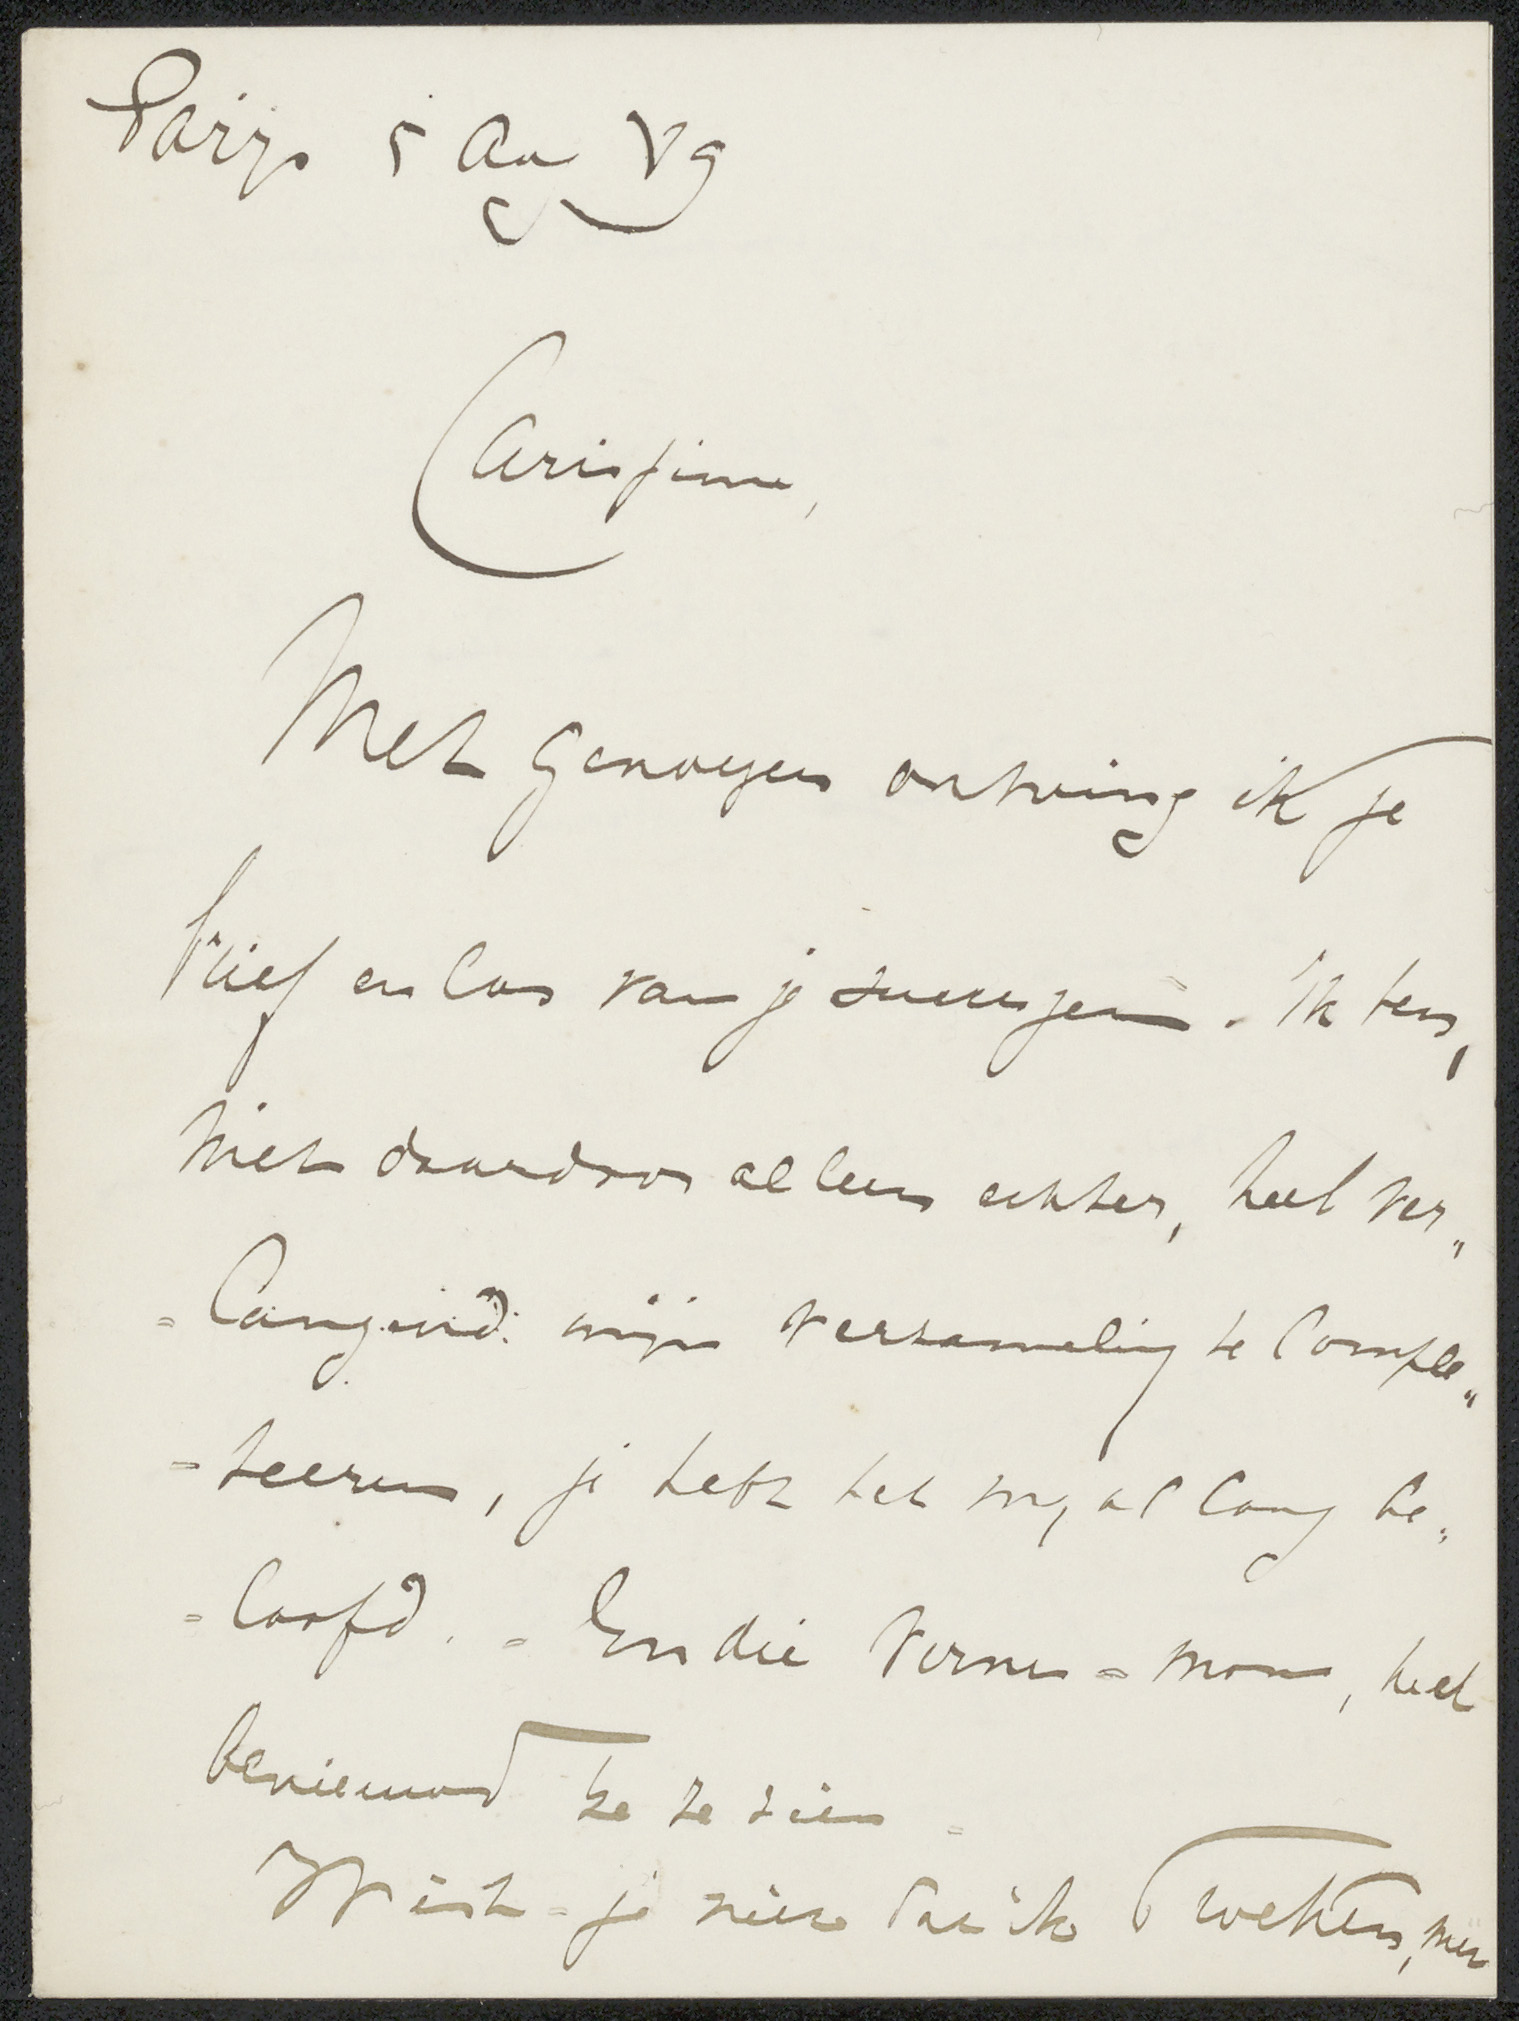 Parijs 5 Aug 89
Carissime,
Met genoegen ontving ik je
brief en las van je . Ik ben,
niet daardoor alleen echter, heel ver„
=langend mijn verzameling te comple„
=teeren, je hebt het mij al lang be„
=loofd. = En die Verme = mon, heel
benieuwd ze te zien =
Wist = je niet dat ik 6 weken, met